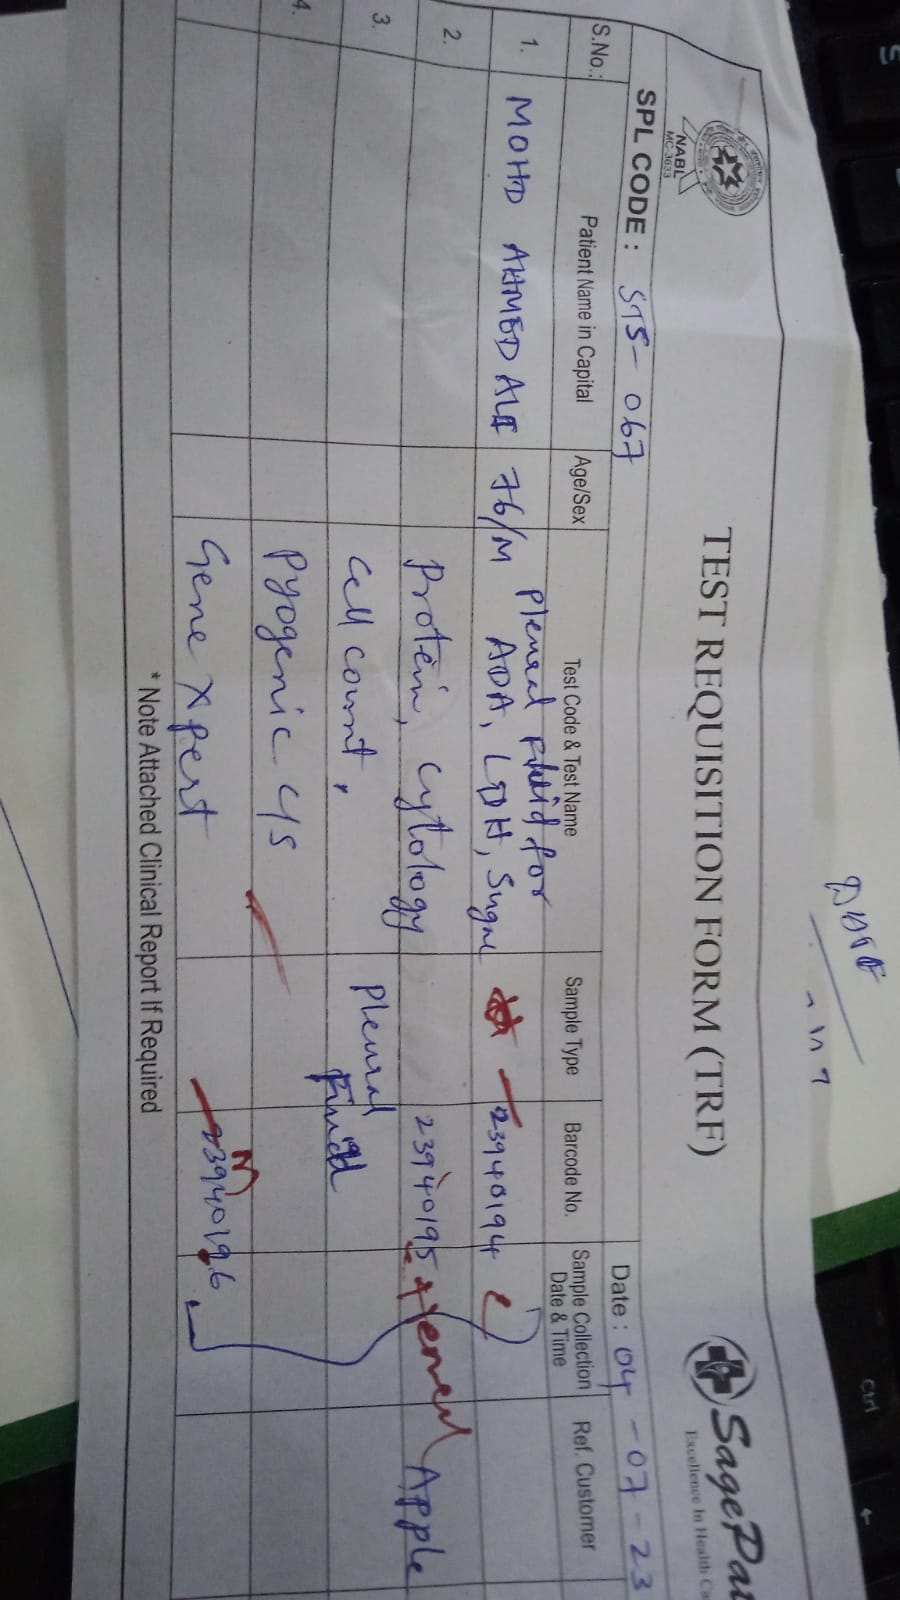 NABL
MC-3633
TEST REQUISITION FORM (TRF)
SagePat
Excellence In Health Ca
SPL CODE : STS- 067
Date : 04 -07-23
S.No.: Patient Name in Capital Age/Sex Test Code & Test Name Sample Type Barcode No. Sample Collection Date & Time Ref. Customer
Pleural fluid for
1. MOHD AHMED ALI 76/M ADA, LDH, Sugar 23940194
2. Protein, Cytology 23940195 Apple
3. Cell count, Pleural Fluid
4. Pyogenic C/s
Gene Xpert 23940196
* Note Attached Clinical Report If Required
Ctrl